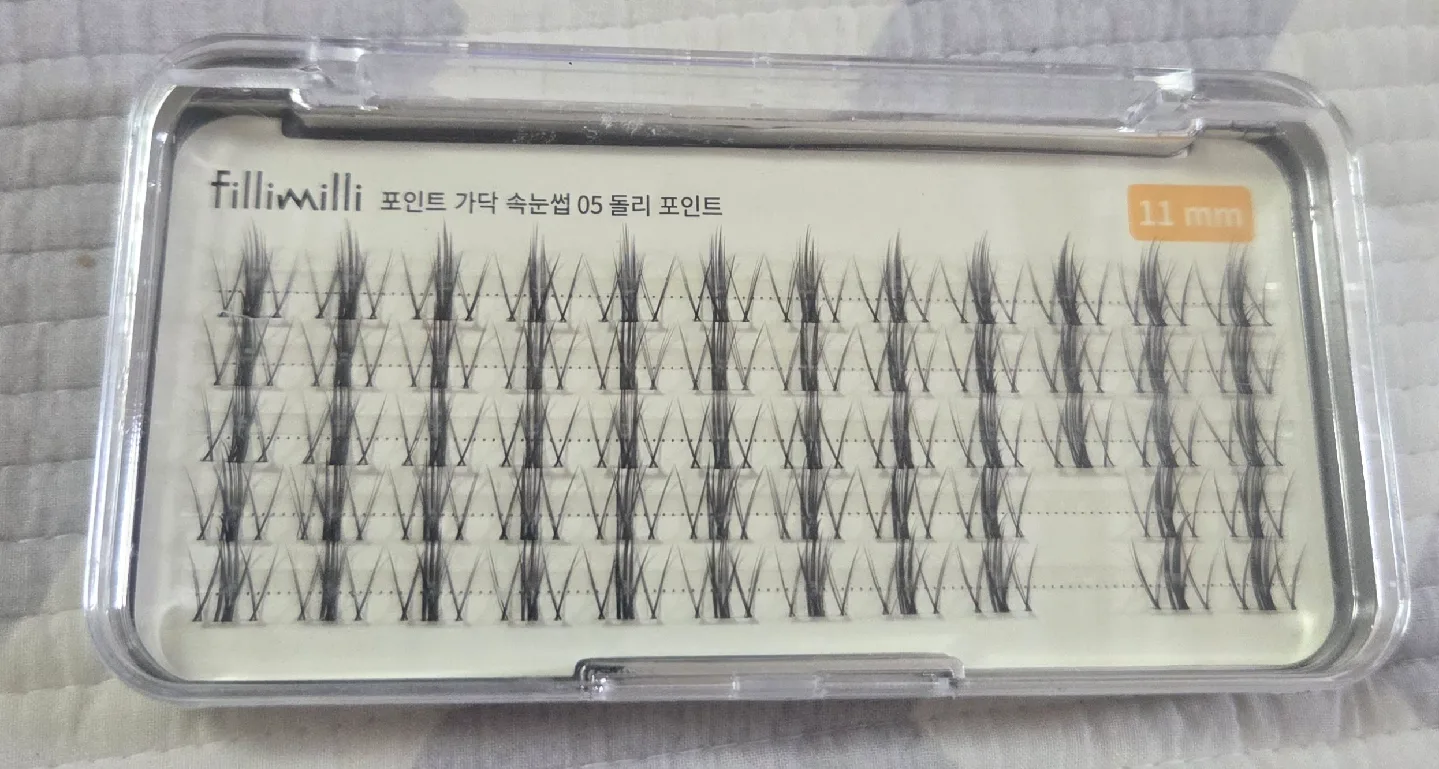 fillimilli 포인트 가닥 속눈썹 05 돌리 포인트
11 mm